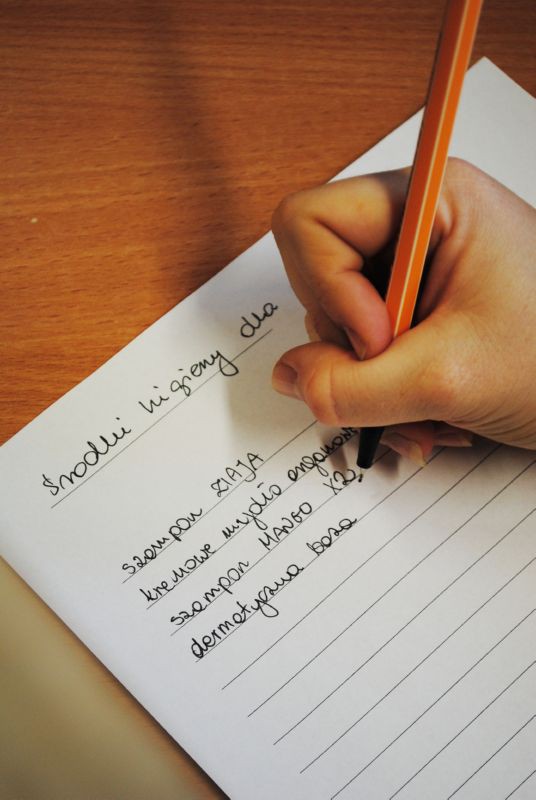 Środki higieny dla
szampon ZIAJA
kremowe mydło
szampon MANGO X2
dermatyczna baza